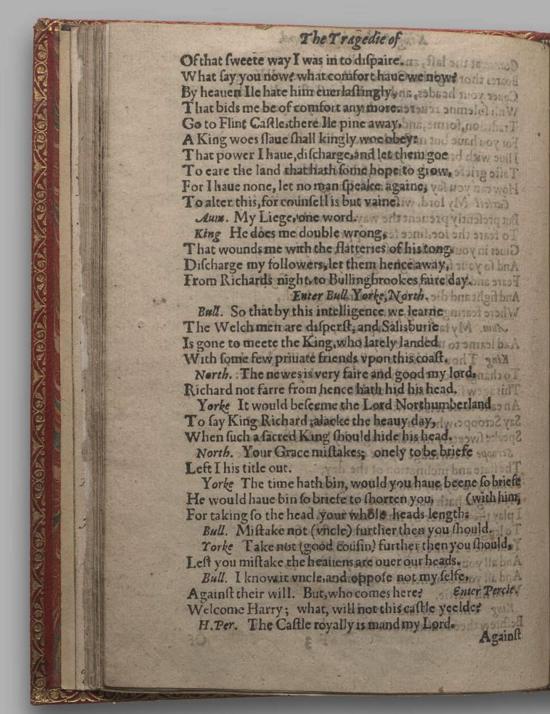 The Tragedie of
Of that sweete way I was in to dispaire.
What say you now? what comfort haue we now?
By heauen Ile hate him euerlastingly,
That bids me be of comfort any more.
Go to Flint Castle, there Ile pine away,
A King woes slaue shall kingly woe obey:
That power I haue, discharge, and let them goe
To eare the land that hath some hope to grow,
For I haue none, let no man speake againe,
To alter this, for counsell is but vaine.
Aum. My Liege, one word.
King He does me double wrong,
That wounds me with the flatteries of his tong,
Discharge my followers, let them hence away,
From Richards night, to Bullingbrookes faire day.
Enter Bull. Yorke, North.
Bull. So that by this intelligence we learne
The Welch men are disperst, and Salisburie
Is gone to meete the King, who lately landed
With some few priuate friends vpon this coast.
North. The newes is very faire and good my lord,
Richard not farre from hence hath hid his head.
Yorke It would beseeme the Lord Northumberland
To say King Richard, alacke the heauy day,
When such a sacred King should hide his head.
North. Your Grace mistakes; onely to be briefe
Left I his title out.
Yorke The time hath bin, would you haue beene so briefe
He would haue bin so briefe to shorten you, (with him,
For taking so the head your whole heads length:
Bull. Mistake not (vncle) further then you should.
Yorke Take not (good cousin) further then you should,
Lest you mistake the heauens are ouer our heads.
Bull. I know it vncle, and oppose not my selfe,
Against their will. But, who comes here? Enter Percie.
Welcome Harry; what, will not this castle yeelde?
H.Per. The Castle royally is mand my Lord.
Against